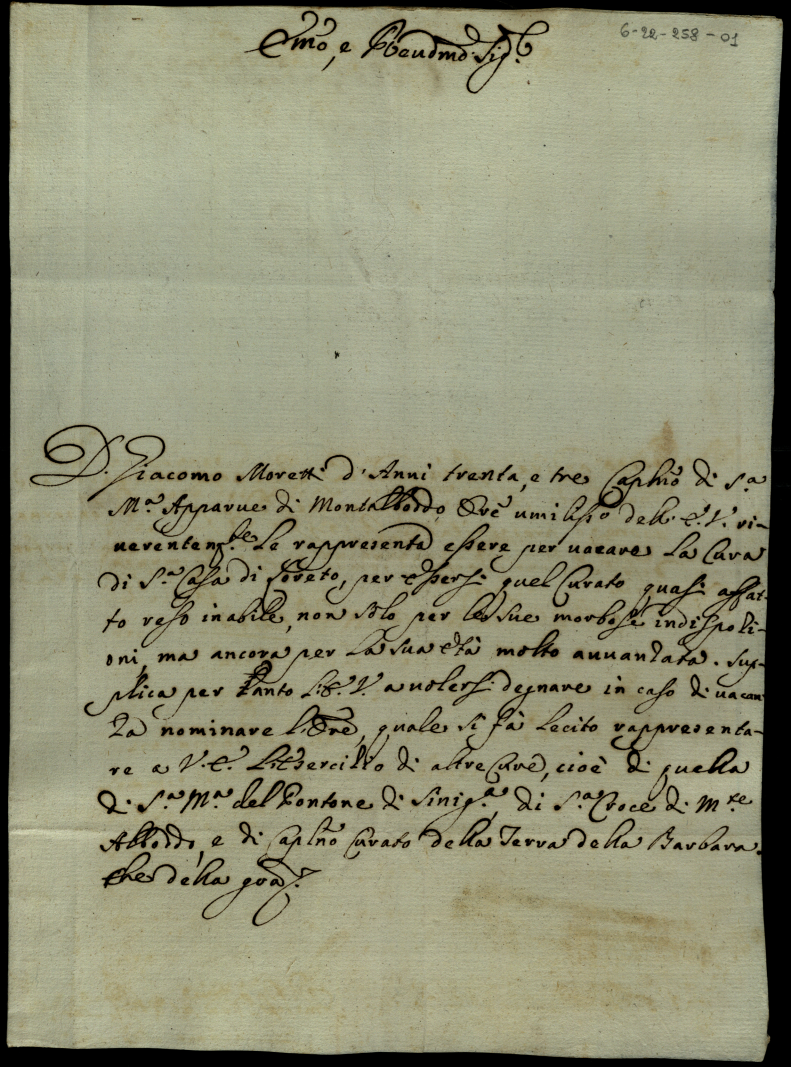 6-22-258-01
Emo, e Reudmo Sig.r
D. Giacomo Moretti d'Anni trenta, e tre Caplno di S.a
M.a Apparue di Montalboddo Ore umiliss.o dell'E.V. ri-
uerentem.te Le rappresenta essere per uacare La Cura
di S.a Casa di Loreto, per essersi quel Curato quasi affat-
to reso inabile, non solo per le sue morbose indispoti-
oni, ma ancora per La sua età molto auuanzata. Sup-
plica per tanto L'E.V. a uolersi degnare in caso di uacan
za nominare l'Ore, quale si fà Lecito rappresenta-
re a V.E. L'Esercizio di altre Cure, cioè di quella
di S.a M.a del Pontone di Sinig.a, di S.a Croce di M.te
Alboddo, e di Caplno Curato della Terra della Barbara.
Che della gra.